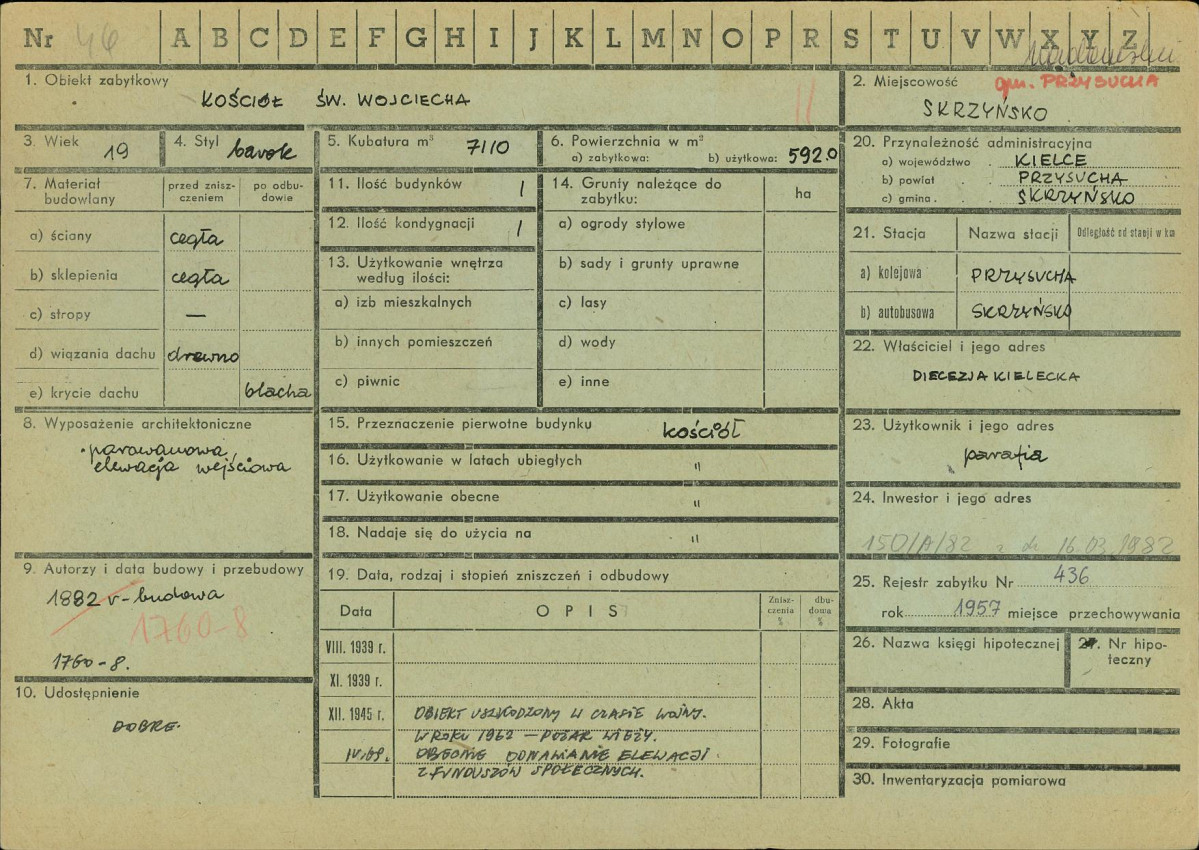 Nr 46 A B C D E F G H I J K L M N O P R S T U V W X Y Z
1. Obiekt zabytkowy
KOŚCIÓŁ ŚW. WOJCIECHA
2. Miejscowość
gm. PRZYSUCHA
SKRZYŃSKO
3. Wiek 19
4. Styl barok
5. Kubatura m³ 7110
6. Powierzchnia w m²
a) zabytkowa: b) użytkowa: 592.0
7. Materiał budowlany
przed znisz-
czeniem
po odbu-
dowie
a) ściany cegła
b) sklepienia cegła
c) stropy —
d) wiązania dachu drewno
e) krycie dachu blacha
8. Wyposażenie architektoniczne
parawanowa
elewacja wejściowa
9. Autorzy i data budowy i przebudowy
1882 r - budowa
1760-8
1760-8.
10. Udostępnienie
DOBRE.
11. Ilość budynków 1
12. Ilość kondygnacji 1
13. Użytkowanie wnętrza
według ilości:
a) izb mieszkalnych
b) innych pomieszczeń
c) piwnic
14. Grunty należące do
zabytku:
ha
a) ogrody stylowe
b) sady i grunty uprawne
c) lasy
d) wody
e) inne
15. Przeznaczenie pierwotne budynku kościół
16. Użytkowanie w latach ubiegłych "
17. Użytkowanie obecne "
18. Nadaje się do użycia na "
19. Data, rodzaj i stopień zniszczeń i odbudowy
Data OPIS
Znisz-
czenia
%
dbu-
dowa
%
VIII. 1939 r.
XI. 1939 r.
XII. 1945 r. OBIEKT USZKODZONY W CZASIE WOJNY.
W ROKU 1962 — POŻAR WIEŻY.
IV.69. OBECNIE ODNAWIANIE ELEWACJI
Z FUNDUSZÓW SPOŁECZNYCH.
20. Przynależność administracyjna
a) województwo KIELCE
b) powiat PRZYSUCHA
c) gmina SKRZYŃSKO
21. Stacja Nazwa stacji Odległość od stacji w km
a) kolejowa PRZYSUCHA
b) autobusowa SKRZYŃSKO
22. Właściciel i jego adres
DIECEZJA KIELECKA
23. Użytkownik i jego adres
parafia
24. Inwestor i jego adres
150/A/82 z dn 16.03.1982
25. Rejestr zabytku Nr 436
rok 1957 miejsce przechowywania
26. Nazwa księgi hipotecznej
27. Nr hipo-
teczny
28. Akta
29. Fotografie
30. Inwentaryzacja pomiarowa